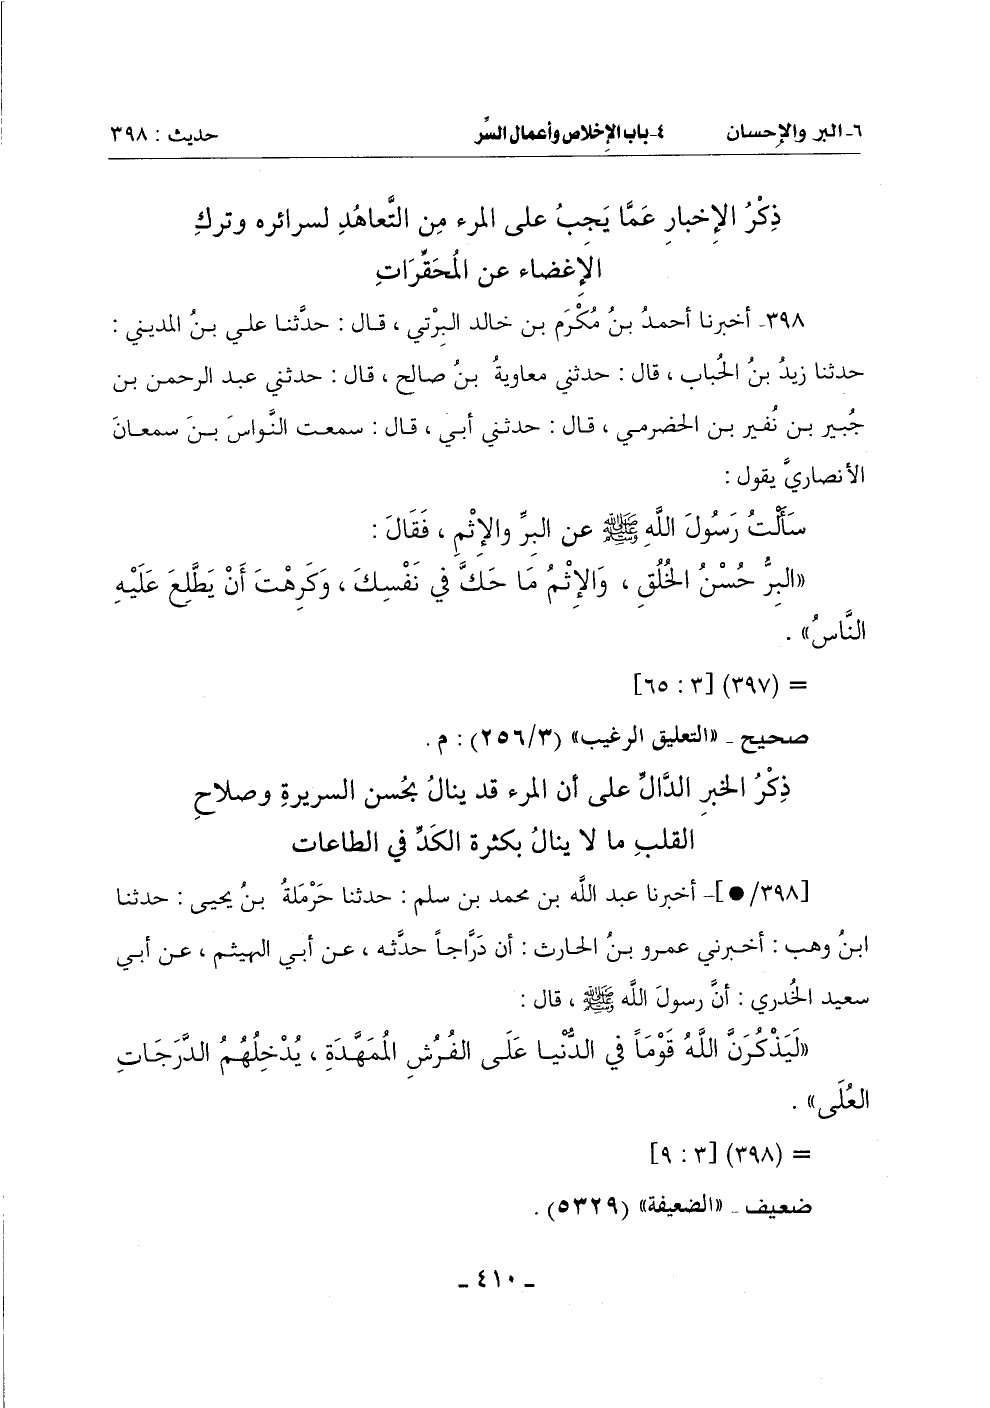 ٦- البر والإحسان ٤- باب الإخلاص وأعمال السِّر حديث : ٣٩٨
ذِكْرُ الإِخبارِ عَمَّا يَجِبُ على المرء مِن التَّعاهُدِ لسرائره وتركِ
الإِغضاء عن المُحَقَّرَاتِ
٣٩٨- أخبرنا أحمدُ بنُ مُكْرَم بن خالد البِرْتي ، قال : حدَّثنا علي بنُ المديني :
حدثنا زيدُ بنُ الحُباب ، قال : حدثني معاويةُ بنُ صالح ، قال : حدثني عبد الرحمن بن
جُبير بن نُفير بن الحضرمي ، قال : حدثني أبي ، قال : سمعت النَّواسَ بنَ سمعانَ
الأنصاريَّ يقول :
سَأَلْتُ رَسُولَ اللَّهِ ﷺ عن البِرِّ والإِثْمِ ، فَقَالَ :
«البِرُّ حُسْنُ الخُلُقِ ، وَالإِثْمُ مَا حَكَّ فِي نَفْسِكَ ، وَكَرِهْتَ أَنْ يَطَّلِعَ عَلَيْهِ
النَّاسُ» .
= (٣٩٧) [٣ : ٦٥]
صحيح ـ «التعليق الرغيب» (٣/٢٥٦) : م .
ذِكْرُ الخبرِ الدَّالِّ على أن المرء قد ينالُ بحُسن السريرةِ وصلاحِ
القلبِ ما لا ينالُ بكثرة الكَدِّ في الطاعات
[٣٩٨/●]- أخبرنا عبد اللَّه بن محمد بن سلم : حدثنا حَرْمَلةُ بنُ يحيى : حدثنا
ابنُ وهب : أخبرني عمرو بنُ الحارث : أن دَرَّاجاً حدَّثه ، عن أبي الهيثم ، عن أبي
سعيد الخُدري : أنَّ رسولَ اللَّه ﷺ ، قال :
«لَيَذْكُرَنَّ اللَّهُ قَوْمَاً فِي الدُّنْيا عَلَى الفُرُشِ المُمَهَّدَةِ ، يُدْخِلُهُمُ الدَّرَجَاتِ
العُلَى» .
= (٣٩٨) [٣ : ٩]
ضعيف ـ «الضعيفة» (٥٣٢٩) .
ـ ٤١٠ ـ